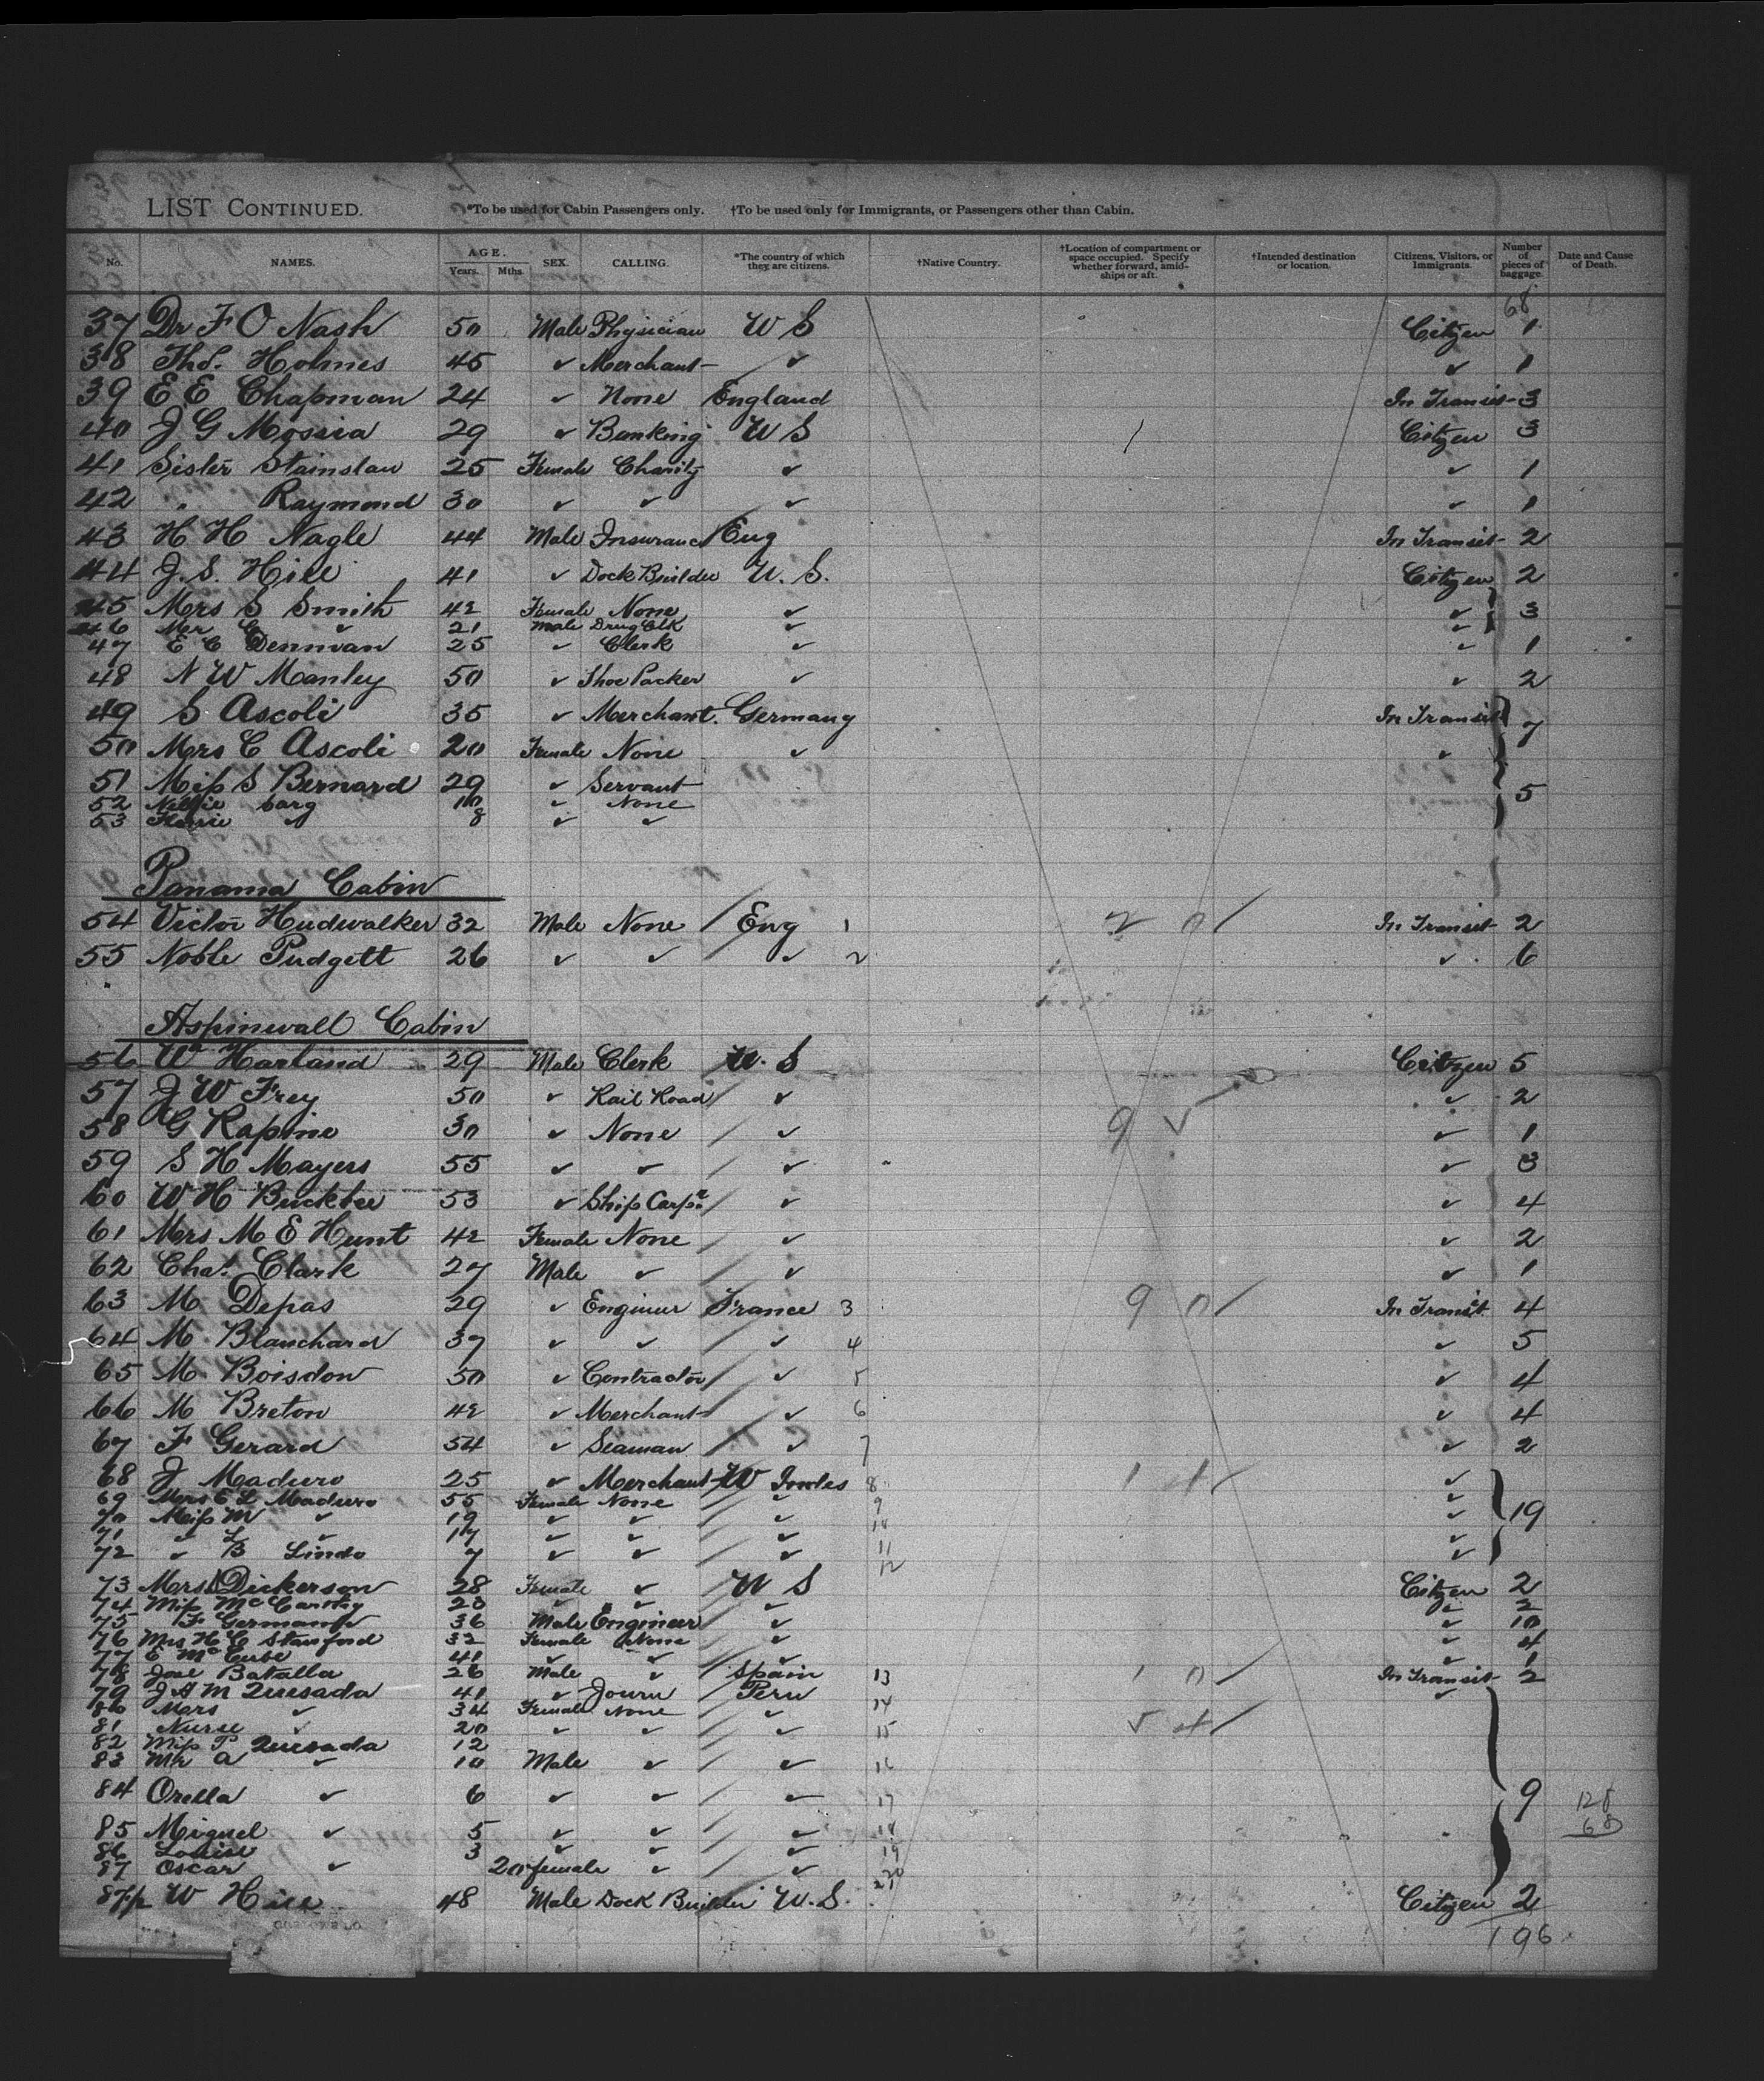 LIST CONTINUED. *To be used for Cabin Passengers only. †To be used only for Immigrants, or Passengers other than Cabin.
No. NAMES. AGE. Years. Mths. SEX. CALLING. *The country of which they are citizens. †Native Country. †Location of compartment or space occupied. Specify whether forward, amidships or aft. †Intended destination or location. Citizens, Visitors, or Immigrants. Number of pieces of baggage. Date and Cause of Death.
68
37 Dr F O Nash 50 Male Physician U S Citizen 1
38 Thos. Holmes 45 ✓ Merchant ✓ ✓ 1
39 E E Chapman 24 ✓ None England In Transit 3
40 J G Mosira 29 ✓ Banking U S / Citizen 3
41 Sister Stainslau 25 Female Charity ✓ ✓ 1
42 " Raymond 30 ✓ ✓ ✓ ✓ 1
43 H H Nagle 44 Male Insuranc Eng In Transit 2
44 J. S. Hill 41 ✓ Dock Builder U. S. Citizen 2
45 Mrs S Smith 42 Female None ✓ ✓ 3
46 Mr C ✓ 21 Male Drug Clk ✓ ✓
47 E C Dennvan 25 ✓ Clerk ✓ ✓ 1
48 N W Manley 50 ✓ Shoe Packer ✓ ✓ 2
49 S Ascoli 35 ✓ Merchant. Germany In Transit 7
50 Mrs C Ascoli 20 Female None ✓ ✓
51 Miss S Bernard 29 ✓ Servant 5
52 Nellie 10 ✓ None
53 8 ✓ ✓
Panama Cabin
54 Victor Hudwalker 32 Male None Eng 1 2 0 / In Transit 2
55 Noble Pudgett 26 ✓ ✓ ✓ 2 ✓ 6
Aspinwall Cabin
56 Wm Harland 29 Male Clerk U. S Citizen 5
57 J W Frey 50 ✓ Rail Road ✓ ✓ 2
58 G Rapine 30 ✓ None ✓ 9 ✓ ✓ 1
59 S H Mayers 55 ✓ ✓ ✓ ✓ 3
60 W H Bucktee 53 ✓ Ship Carpr ✓ ✓ 4
61 Mrs M E Hunt 42 Female None ✓ ✓ 2
62 Chas. Clark 27 Male ✓ ✓ ✓ 1
63 M Depas 29 ✓ Engineer France 3 9 0 / In Transit 4
64 M. Blanchard 37 ✓ ✓ ✓ 4 ✓ 5
65 M. Boisdon 50 ✓ Contractor ✓ 5 ✓ 4
66 M Breton 42 ✓ Merchant ✓ 6 ✓ 4
67 F Gerard 54 ✓ Seaman ✓ 7 ✓ 2
68 J Maduro 25 ✓ Merchant W Indes 8 1 4 / ✓
69 Mrs E L Maduro 55 Female None ✓ 9 ✓
70 Miss M ✓ 19 ✓ ✓ ✓ 10 19
71 ✓ L ✓ 17 ✓ ✓ ✓ 11 ✓
72 ✓ B Lindo 7 ✓ ✓ ✓ 12 ✓
73 Mrs Dickerson 28 Female ✓ U S Citizen 2
74 Miss McCarthy 20 ✓ ✓ ✓ ✓ 2
75 F Germann 36 Male Engineer ✓ ✓ 10
76 Mrs H C Stanford 32 Female None ✓ ✓ 4
77 E McCube 41 ✓ ✓ ✓ ✓ 1
78 Jose Batalla 26 Male ✓ Spain 13 1 0 / In Transit 2
79 J A M Quesada 41 ✓ Journ Peru 14 ✓
80 Mrs ✓ 34 Female None ✓
81 Nurse ✓ 20 ✓ ✓ ✓ 15 5 4 /
82 Miss P Quesada 12
83 Mr A ✓ 10 Male ✓ ✓ 16
84 Orella ✓ 6 ✓ ✓ ✓ 17 9 128
85 Miguel ✓ 5 ✓ ✓ ✓ 18 68
86 Louise 3 ✓ ✓ ✓ 19
87 Oscar ✓ 20 female ✓ ✓ 20
21
87½ W Hill 48 Male Dock Builder U. S. Citizen 2
196